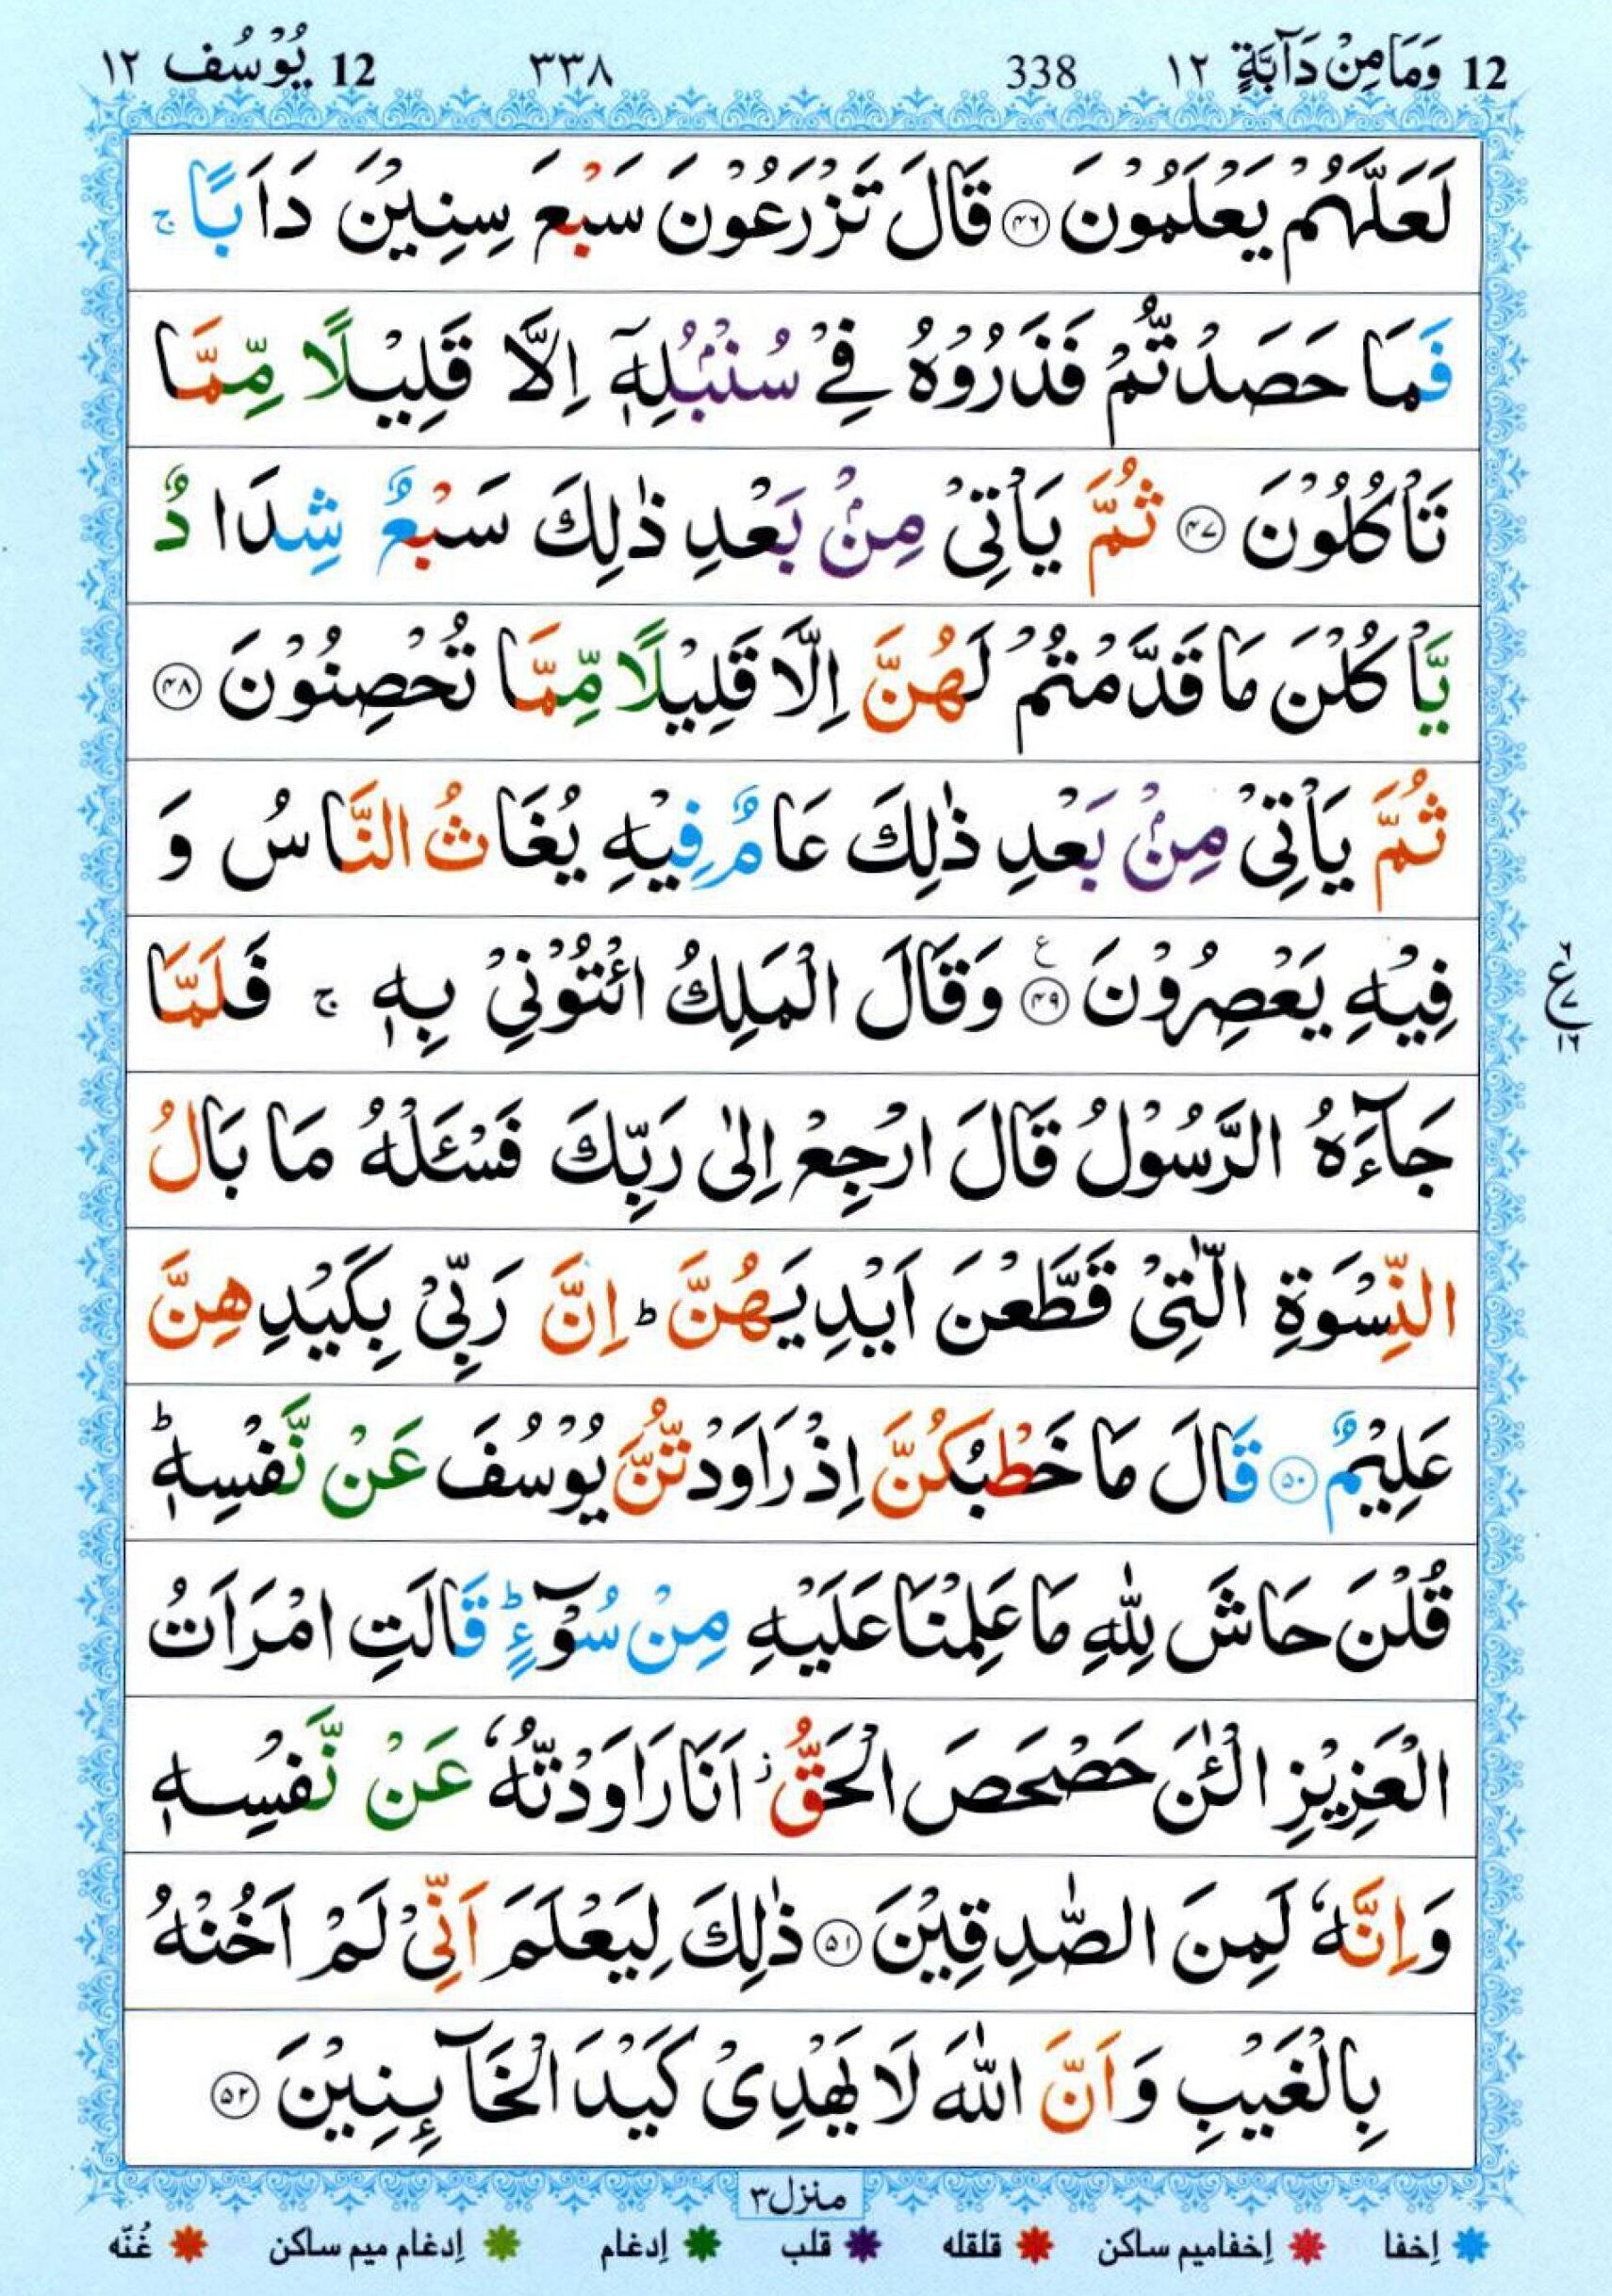 12 وَمَا مِنْ دَآبَّةٍ ١٢ 338 ٣٣٨ 12 يُوْسُف ١٢
لَعَلَّهُمْ يَعْلَمُوْنَ ﴿۴۶﴾ قَالَ تَزْرَعُوْنَ سَبْعَ سِنِيْنَ دَاَبًا ۚ
فَمَا حَصَدْتُّمْ فَذَرُوْهُ فِيْ سُنْۢبُلِهٖۤ اِلَّا قَلِيْلًا مِّمَّا
تَاْكُلُوْنَ ﴿۴۷﴾ ثُمَّ يَاْتِيْ مِنْۢ بَعْدِ ذٰلِكَ سَبْعٌ شِدَادٌ
يَّاْكُلْنَ مَا قَدَّمْتُمْ لَهُنَّ اِلَّا قَلِيْلًا مِّمَّا تُحْصِنُوْنَ ﴿۴۸﴾
ثُمَّ يَاْتِيْ مِنْۢ بَعْدِ ذٰلِكَ عَامٌ فِيْهِ يُغَاثُ النَّاسُ وَ
فِيْهِ يَعْصِرُوْنَ ﴿۴۹﴾ ع وَقَالَ الْمَلِكُ ائْتُوْنِيْ بِهٖ ۚ فَلَمَّا
ع ١٦
جَآءَهُ الرَّسُوْلُ قَالَ ارْجِعْ اِلٰى رَبِّكَ فَسْـَٔلْهُ مَا بَالُ
النِّسْوَةِ الّٰتِيْ قَطَّعْنَ اَيْدِيَهُنَّ ؕ اِنَّ رَبِّيْ بِكَيْدِهِنَّ
عَلِيْمٌ ﴿۵۰﴾ قَالَ مَا خَطْبُكُنَّ اِذْ رَاوَدْتُّنَّ يُوْسُفَ عَنْ نَّفْسِهٖ ؕ
قُلْنَ حَاشَ لِلّٰهِ مَا عَلِمْنَا عَلَيْهِ مِنْ سُوْٓءٍ ؕ قَالَتِ امْرَاَتُ
الْعَزِيْزِ الْـٰٔنَ حَصْحَصَ الْحَقُّ ؗ اَنَا رَاوَدْتُّهٗ عَنْ نَّفْسِهٖ
وَاِنَّهٗ لَمِنَ الصّٰدِقِيْنَ ﴿۵۱﴾ ذٰلِكَ لِيَعْلَمَ اَنِّيْ لَمْ اَخُنْهُ
بِالْغَيْبِ وَاَنَّ اللّٰهَ لَا يَهْدِيْ كَيْدَ الْخَآئِنِيْنَ ﴿۵۲﴾
منزل٣
إخفا إخفاميم ساكن قلقله قلب إدغام إدغام ميم ساكن غُنّه